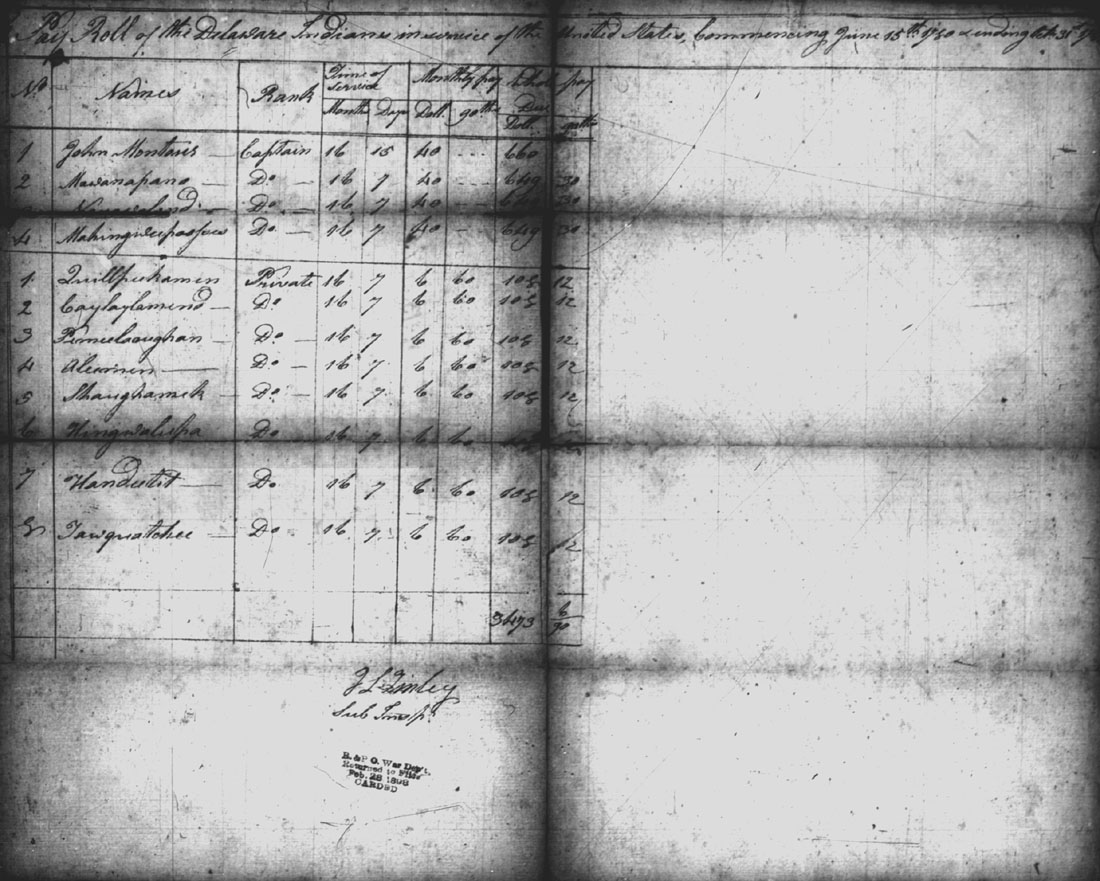 Pay Roll of the Delaware Indians in service of the United States, Commencing June 15th 1780 & ending Octr. 31st
No. Names Rank Time of service Monthly pay whole pay Due
Months Days Doll. 90ths Doll. 90ths
1 John Montour — Captain 16 15 40 --- 660
2 Mawanapano — Do — 16 7 40 --- 649 30
Do — 16 7 40 --- 649 30
4 Do — 16 7 40 - 649 30
1 Quillpeekamen Private 16 7 6 60 108 12
2 Caylaylamend — Do 16 7 6 60 108 12
3 Do — 16 7 6 60 108 12
4 Alermen — Do — 16 7 6 60 108 12
5 Shaughamek — Do — 16 7 6 60 108 12
6 Hingwalispa Do 16 7 6 60
7 Handestit — Do 16 7 6 60 108 12
8 Tawquatchee — Do 16 7 6 60 108 12
3473 6/90
Sub Insp.r
R. & P. O. War Dep't.
Returned to Files
Feb. 28 1898
CARDED